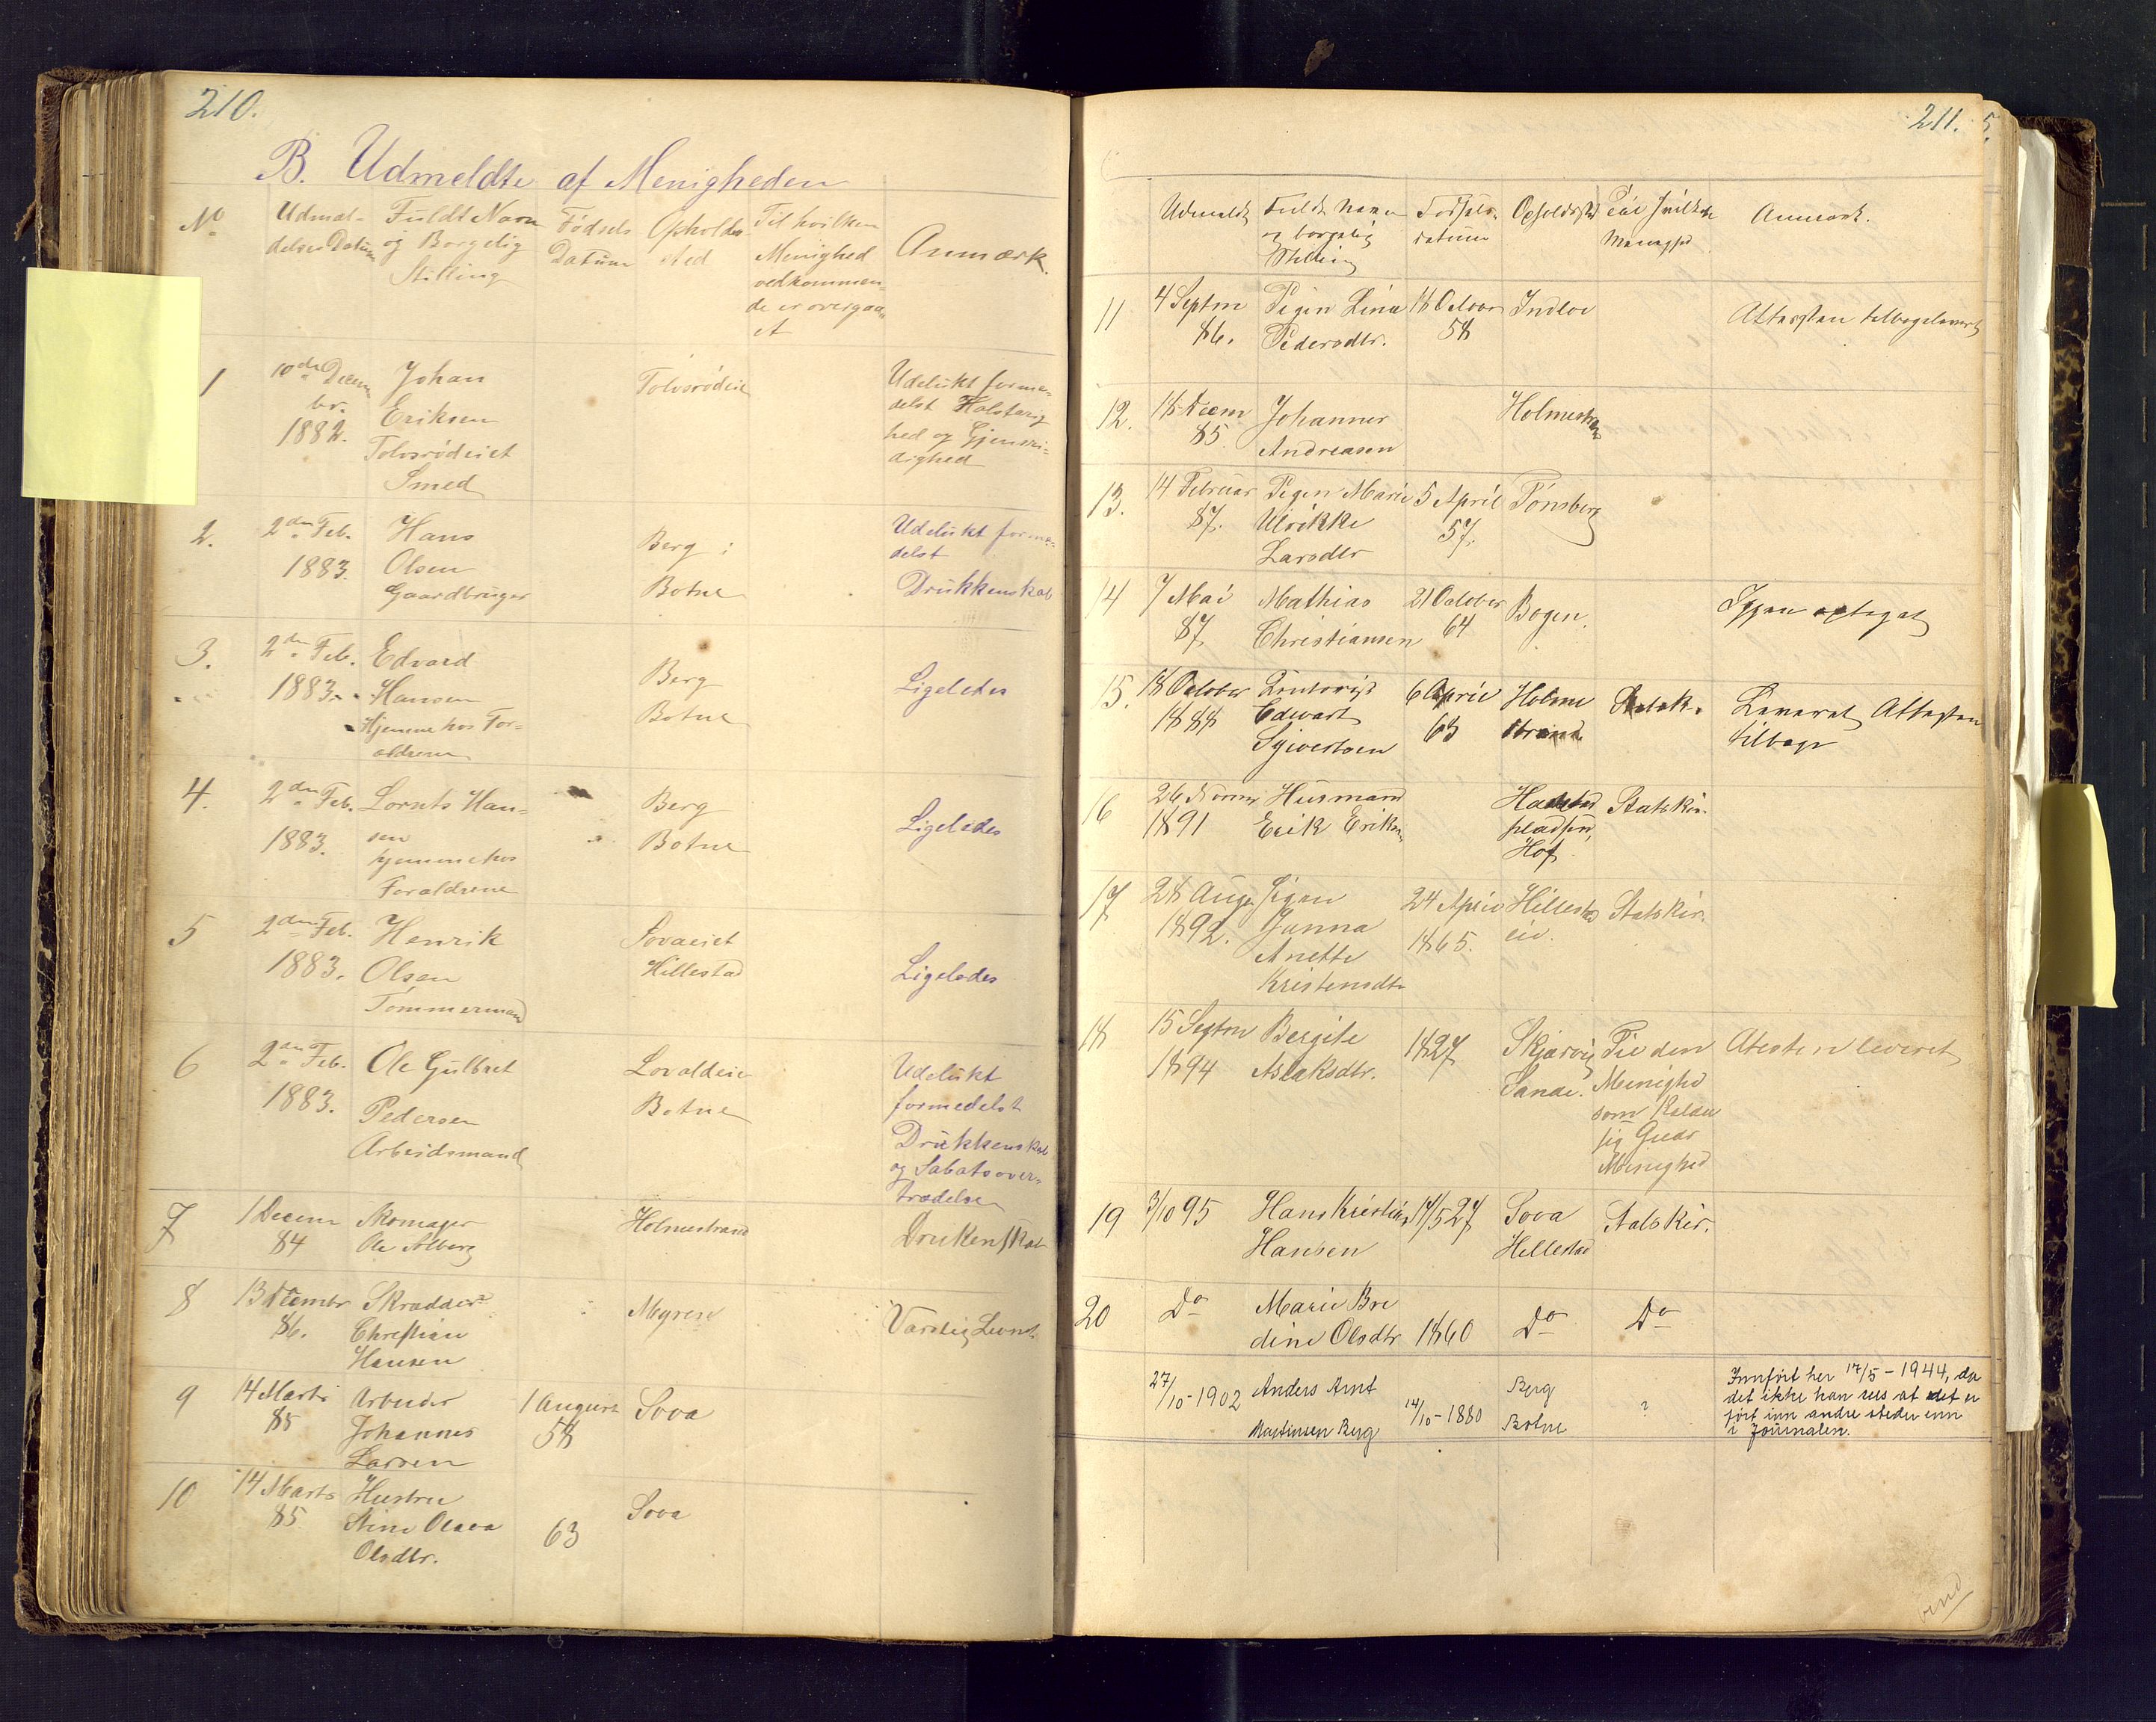 210.
B. Udmeldte af Menigheden
No
Udmel-
delses Datum
Fuldt Navn
og Borgelig
Stilling
Fødsels
Datum
Opholds
sted
Til hvilken
Menighed
vedkommen-
de er overgaa-
et
Anmærk.
1
10de Decem
br.
1882.
Johan
Eriksen
Tolvsrødeiet
Smed
Tolvsrødeie
Udelukt forme-
delst Halstarig
hed og Gjenstri-
dighed
2.
2den Feb.
1883.
Hans
Olsen
Gaardbruger
Berg i
Botne
Udelukt forme-
delst
Drukkenskab
3.
2den Feb.
1883.
Edvard
Hansen
Hjemme hos For-
ældrene
Berg
Botne
Ligeledes
4.
2den Feb.
1883.
Lornts Han-
sen
hjemme hos
Forældrene
Berg
Botne
Ligeledes
5
2den Feb.
1883.
Henrik
Olsen
Tømmermand
Sovaeiet
Hillestad
Ligeledes
6
2den Feb.
1883.
Ole Gulbret
Pedersen
Arbeidsmand
Lovaldeie
Botne
Udelukt
formedelst
Drukkenskab
og Sabatsover-
trædelse
7
1 Decem
84
Skomager
Ole Solberg
Holmestrand
Drukenskab
8
13 Decembr
86.
Skrædder
Christian
Hansen
Myrene
9
14 Marts
85
Arbeider
Johannes
Larsen
1 August
58
Sova
10
14 Marts
85
Hustru
Stine Olava
Olsdtr.
63
Sova
211.
5.
Udmeldt
Fuldt Navn
og borgelig
Stilling
Fødsels
datum
Opholdsst
Til hvilken
Menighed
Anmærk.
11
4 Septm
86.
Pigen Lina
Pedersdtr.
18 October
58
Indloe
Attesten tilbageleveret
12.
18 Decem
85
Johannes
Andreasen
Holmestrand
13.
14 Februar
87.
Pigen Marie
Ulrikke
Larsdtr
5 April
57.
Tønsberg
14
7 Mai
87.
Mathias
Christiansen
21 October
64
Bogen.
Igjen optaget
15.
18 October
1888
Kontorist
Edvart
Syvertsen
6 April
63
Holme
strand
Statsk.
Leveret Attesten
tilbage
16
26 Novem
1891
Husmand
Erik Eriksen
pladsen,
Hof.
Statskir.
17
28 Aug.
1892.
Pigen
Gunna
Anette
Kristensdtr
24 April
1865.
Hillestad
eie.
Statskir.
18
15 Septem
1894
Bergite
Aslaksdtr.
1827
Skjærvig
Sande.
Til den
Menighed
som Kalder
sig Guds
Menighed
Atesten leveret
19
3/10 95
Hans Kristian
Hansen
14/5 27
Sova
Hillestad
Statskir.
20
Do
Marie Bre
dine Olsdtr
1860
Do
Do
27/10-1902
Anders Arnt
Martinsen Berg
14/10-1880
Berg
Botne
?
Innført her 17/5-1944, da
det ikke kan sees at det er
ført inn andre steder enn
i Journalen.
vend